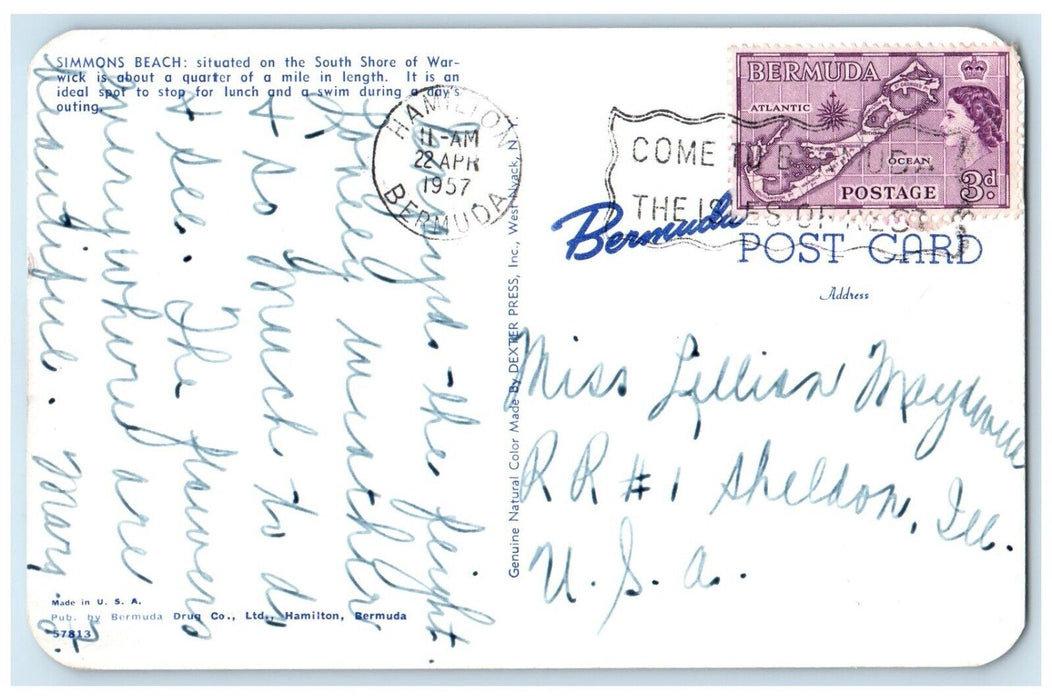 SIMMONS BEACH: situated on the South Shore of War-
wick is about a quarter of a mile in length. It is an
ideal spot to stop for lunch and a swim during a day's
outing.
HAMILTON
11-AM
22 APR
1957
BERMUDA
COME TO BERMUDA
THE ISLES OF REST
BERMUDA
ATLANTIC
OCEAN
POSTAGE
3d.
Bermuda
POST CARD
Address
the flight
lovely weather
& so much to do
& see. The flowers
everywhere are
beautiful. Mary
Miss Lillian
RR #1 Sheldon, Ill.
U.S.A.
Genuine Natural Color Made By DEXTER PRESS, Inc., West Nyack, N.
Made in U. S. A.
Pub. by Bermuda Drug Co., Ltd., Hamilton, Bermuda
57813